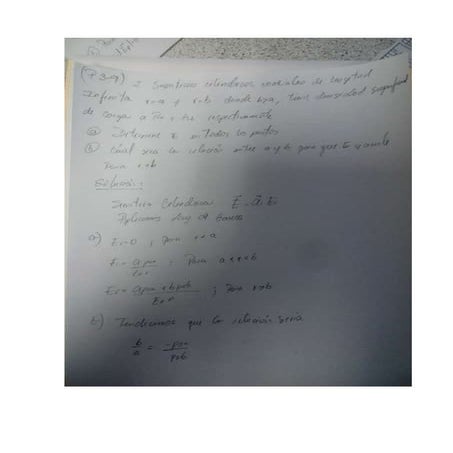 (P.3-9) 2 Simetricas cilindricas coaxiales de longitud
Infinita r=a y r=b donde b>a, tiene densidad superficial
de carga a ρsa y ρsb respectivamente
ⓐ Determine E en todos los puntos
ⓑ Cual sea la relación entre a y b para que E se anule
para r>b
Solución:
Simetria Cilindrica, E = ar Er
Aplicamos Ley de Gauss
a) Er=0 ; para r<a
Er = aρsa/ε0r ; Para a<r<b
Er = aρsa + bρsb/ε0r ; para r>b
b) Tendriamos que la relación seria
b/a = -ρsa/ρsb